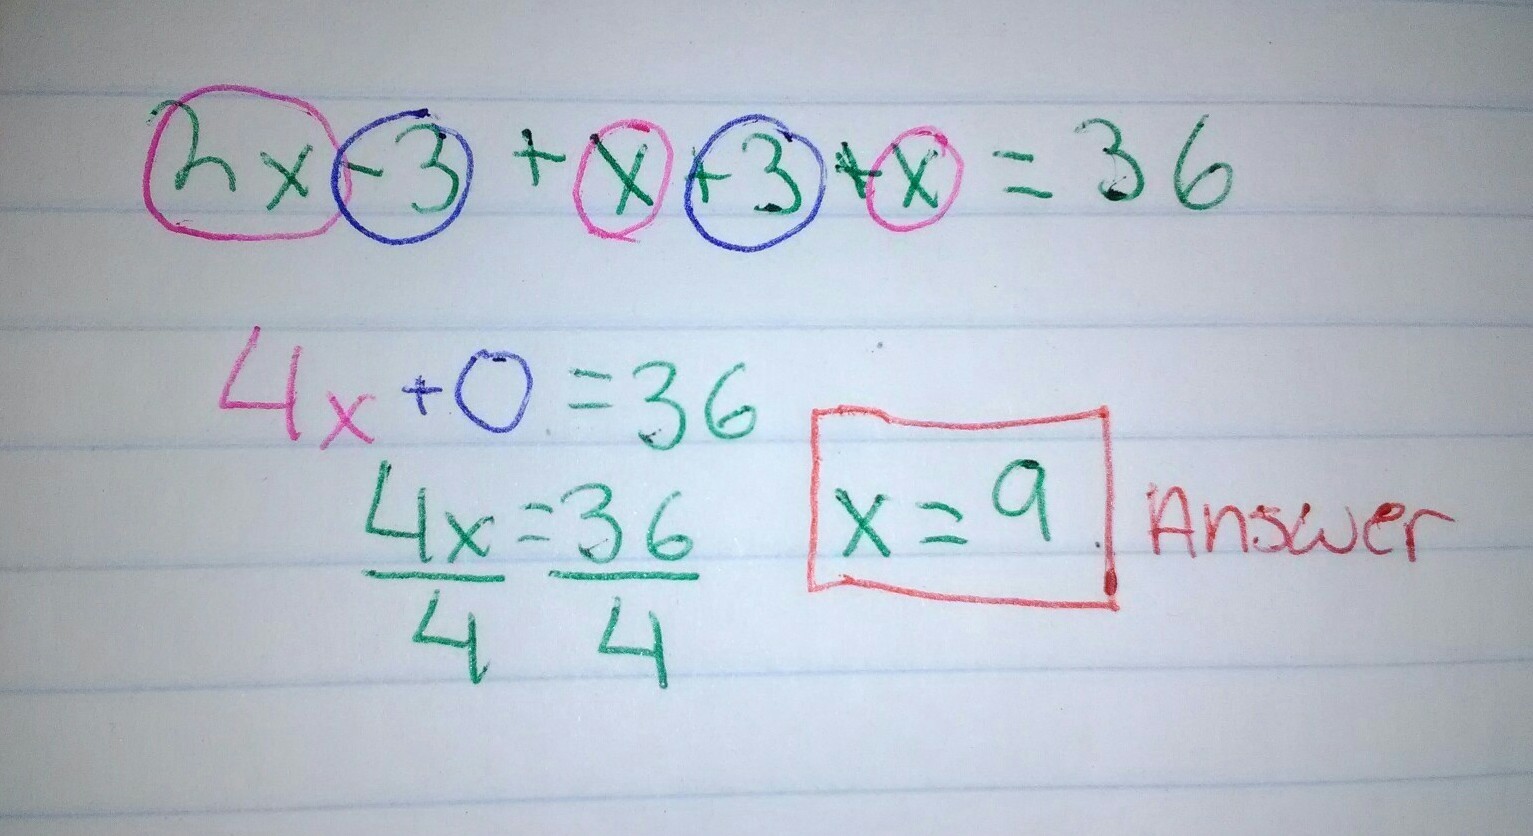 2x-3 + x + 3 + x = 36
4x + 0 = 36
4x = 36
4 4
x = 9 Answer